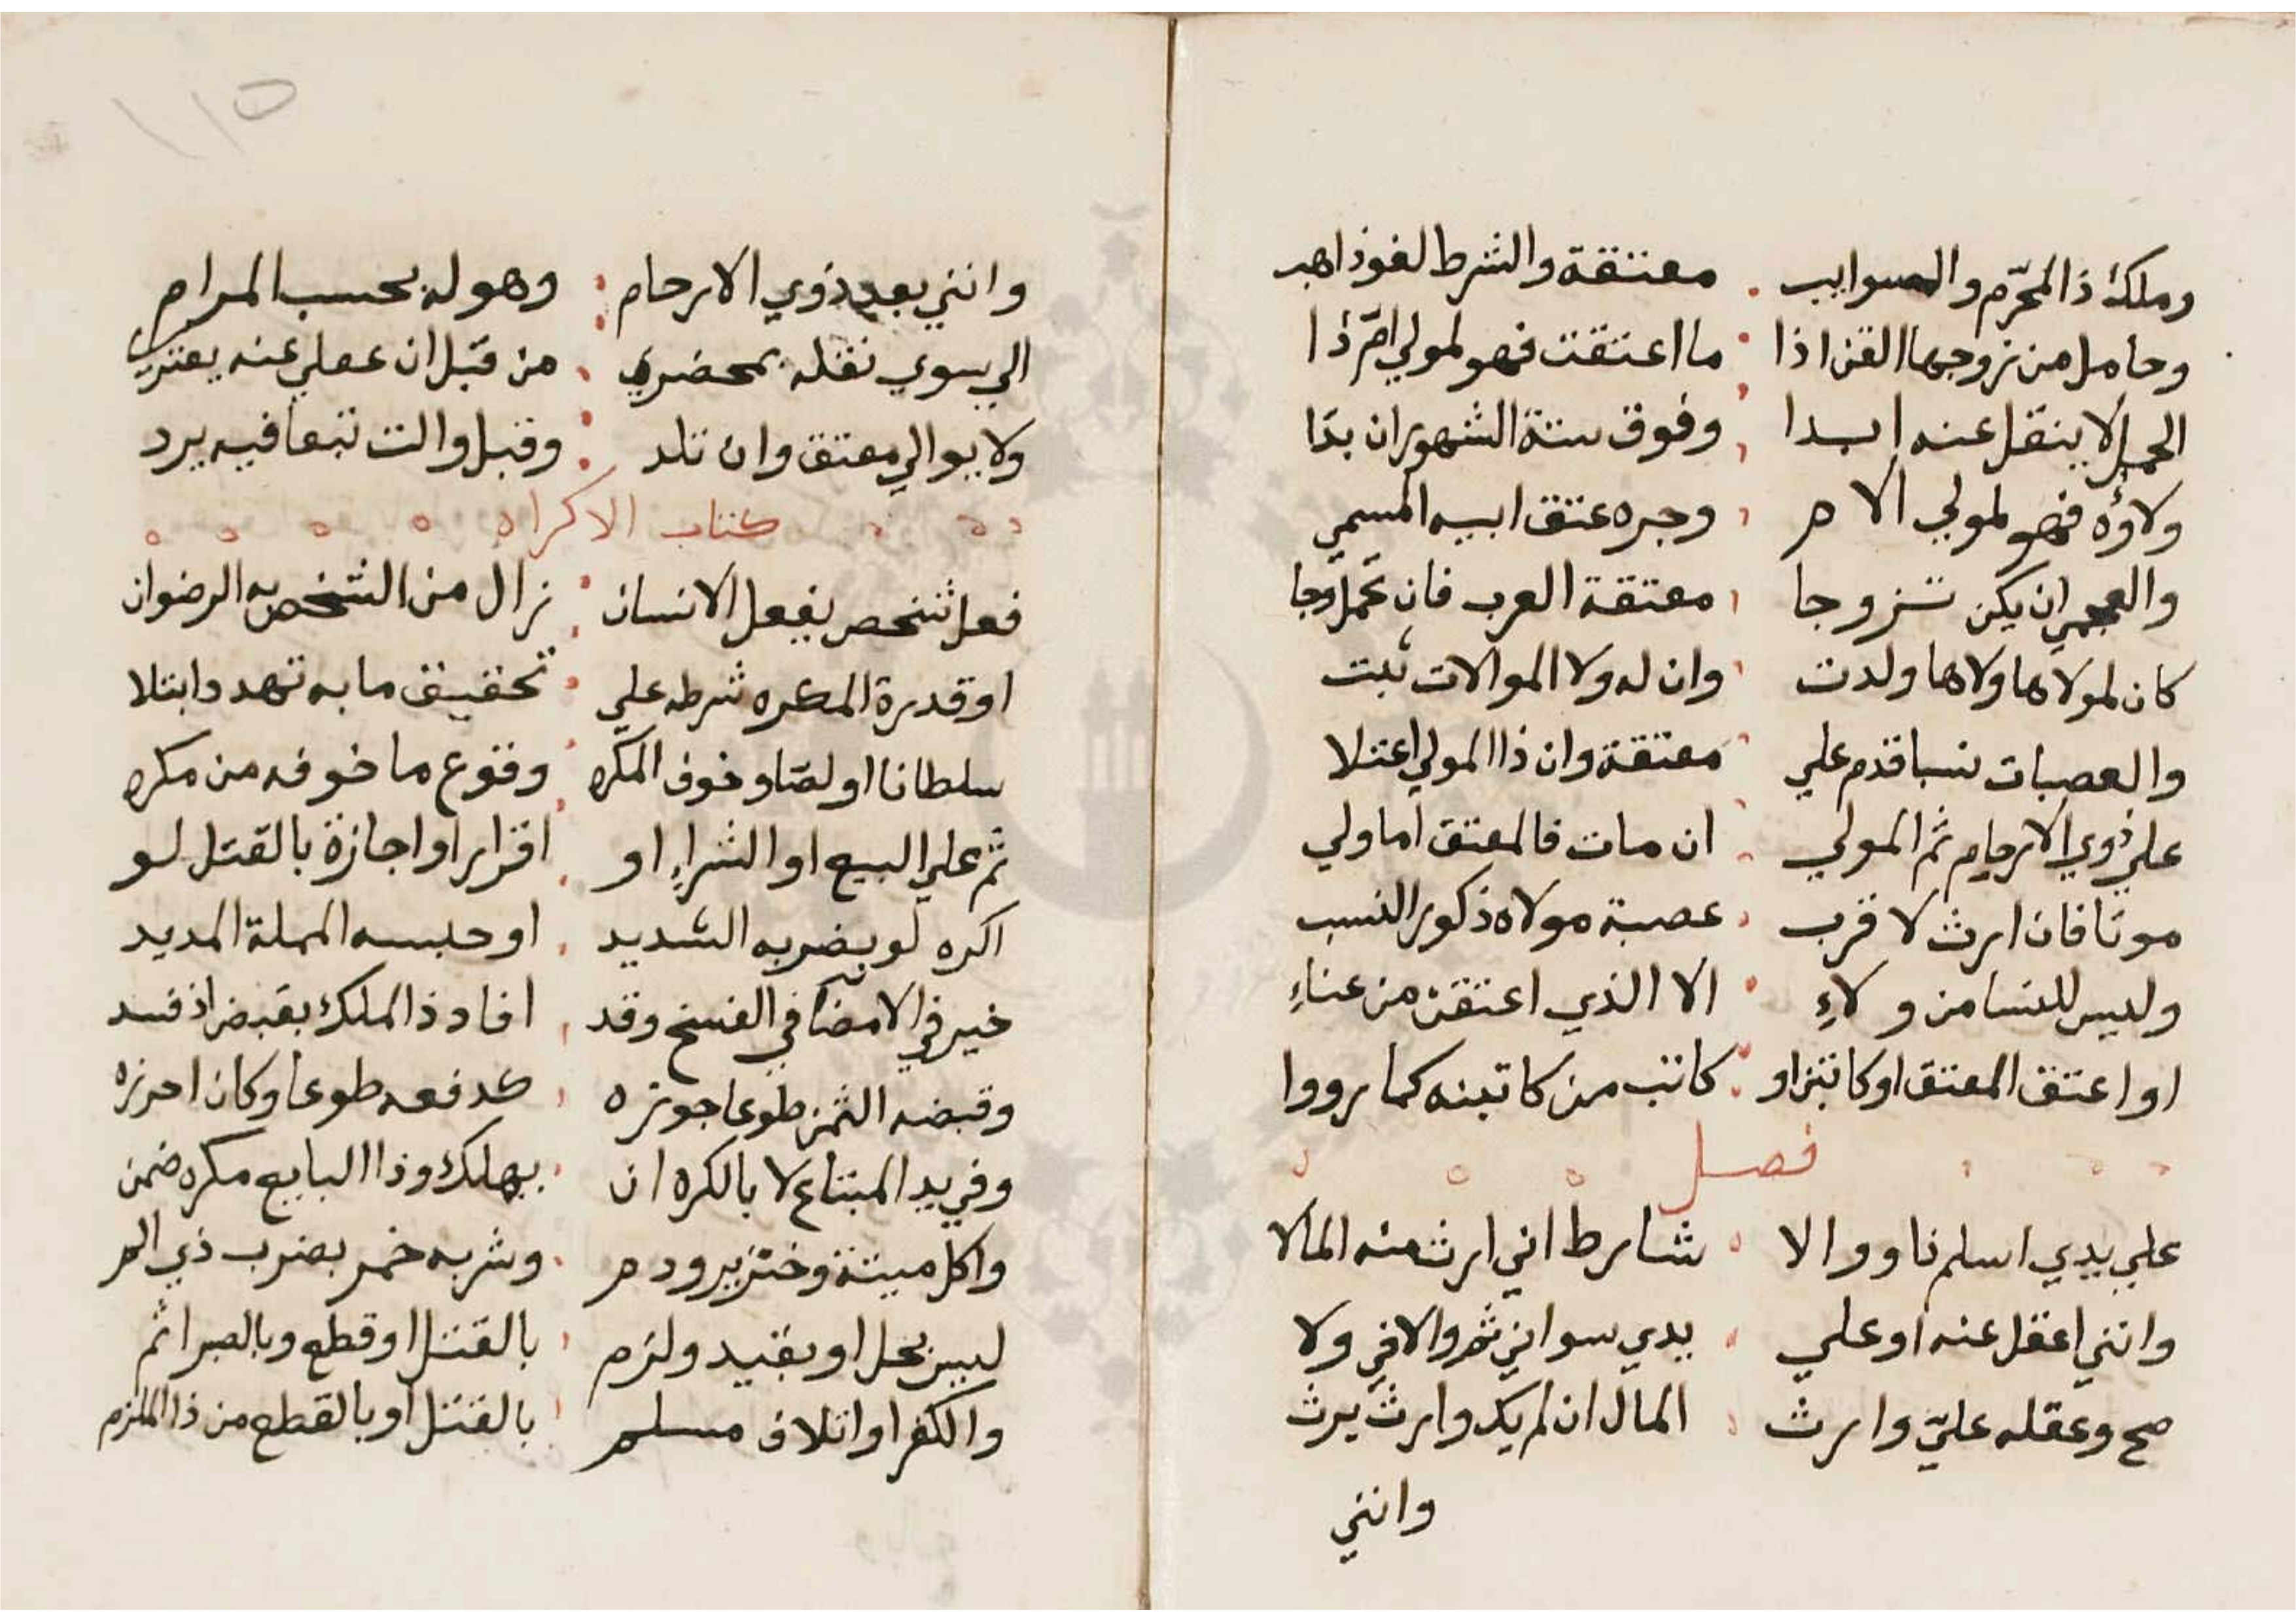 وملك ذا المحرّم والسوايب معتقة والشرط لغو ذاهب
وحامل من زوجها القن اذا ما اعتقت فهو لمولى امّ ذا
الحمل لا ينقل عنه ابدا وفوق ستة الشهور ان بدا
ولاؤه فهو لمولي الام وجره عتق ابيه المسمي
والعجمي ان يكن تزوجا معتقة العرب فان تحمل وجا
كان لمولاها ولاها ولدت وان له ولا الموالات ثبت
والعصبات نسبا قدم علي معتقة وان ذا المولي اعتلا
علي ذوي الارحام ثم المولي ان مات فالمعتق اما ولي
موتا فان ارث لا قرب عصبة مولاه ذكور النسب
وليس للنسا من ولاءِ الا الذي اعتقن من عناءِ
او اعتق المعتق او كاتبن او كاتب من كاتبنه كما رووا
فصل
علي يدي اسلم نا ووالا شارط اني ارث منه المالا
وانني اعقل عنه او علي يدي سواني ثم والاني ولا
صح وعقله عليّ وارث المال ان لم يك وارث يرث
وانني
١١٥
وانني بعد ذوي الارحام وهو له بحسب المرام
الي سوي نقله بمحضري من قبل ان عقلي عنه يعتري
ولا يوالي معتق وان تلد وقبل والت تبعا فيه يرد
كتاب الاكراه
فعل شخص يفعل الانسان زال من الشخص به الرضوان
او قدرة المكره شرطه علي تحقيق ما به تهدد وابتلا
سلطانا او لصّا وخوف المكره وقوع ما خوفه من مكره
ثم علي البيع او الشراءِ او اقرار او اجازة بالقتل لو
اكره لو بضربه الشديد او حبسه المملة المديد
خير في الامضا في الفسخ وقد افاد ذا الملك بقبض اذ فسد
وقبضه الثمن طوعا جوزه كدفعه طوعا وكان احرزه
وفي يد المبتاع لا بالكره ان يهلك وذا البايع مكره ضمن
واكل ميتة وخنزير ودم وشربه خمر بضرب ذي الم
ليس يحل او بقيد ولزم بالقتل او قطع وبالصبر اثم
والكفر او اتلاف مسلم بالقتل او بالقطع من ذا الملزم